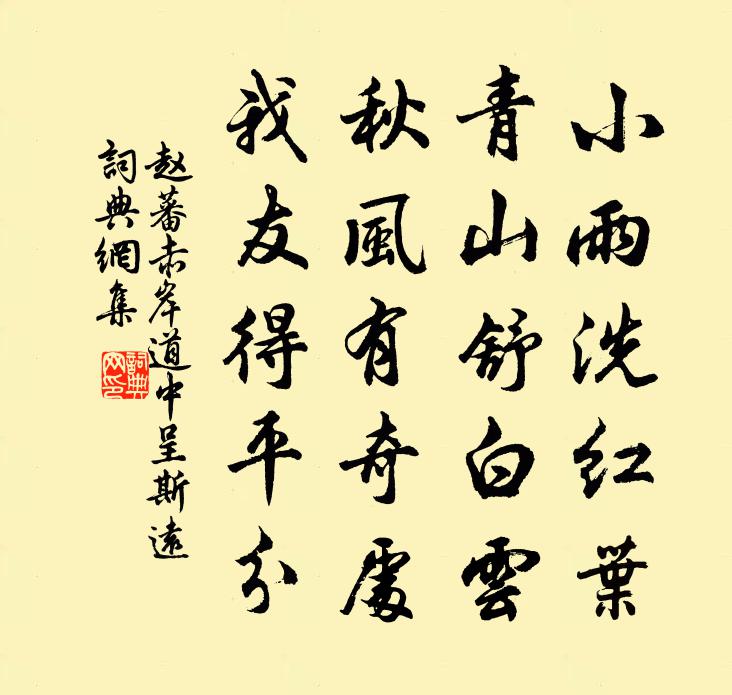 小雨洗红葉
青山舒白雲
秋風有奇處
我友得平分
赵蕃赤岸道中呈斯遠
詞典網集
詞典网印